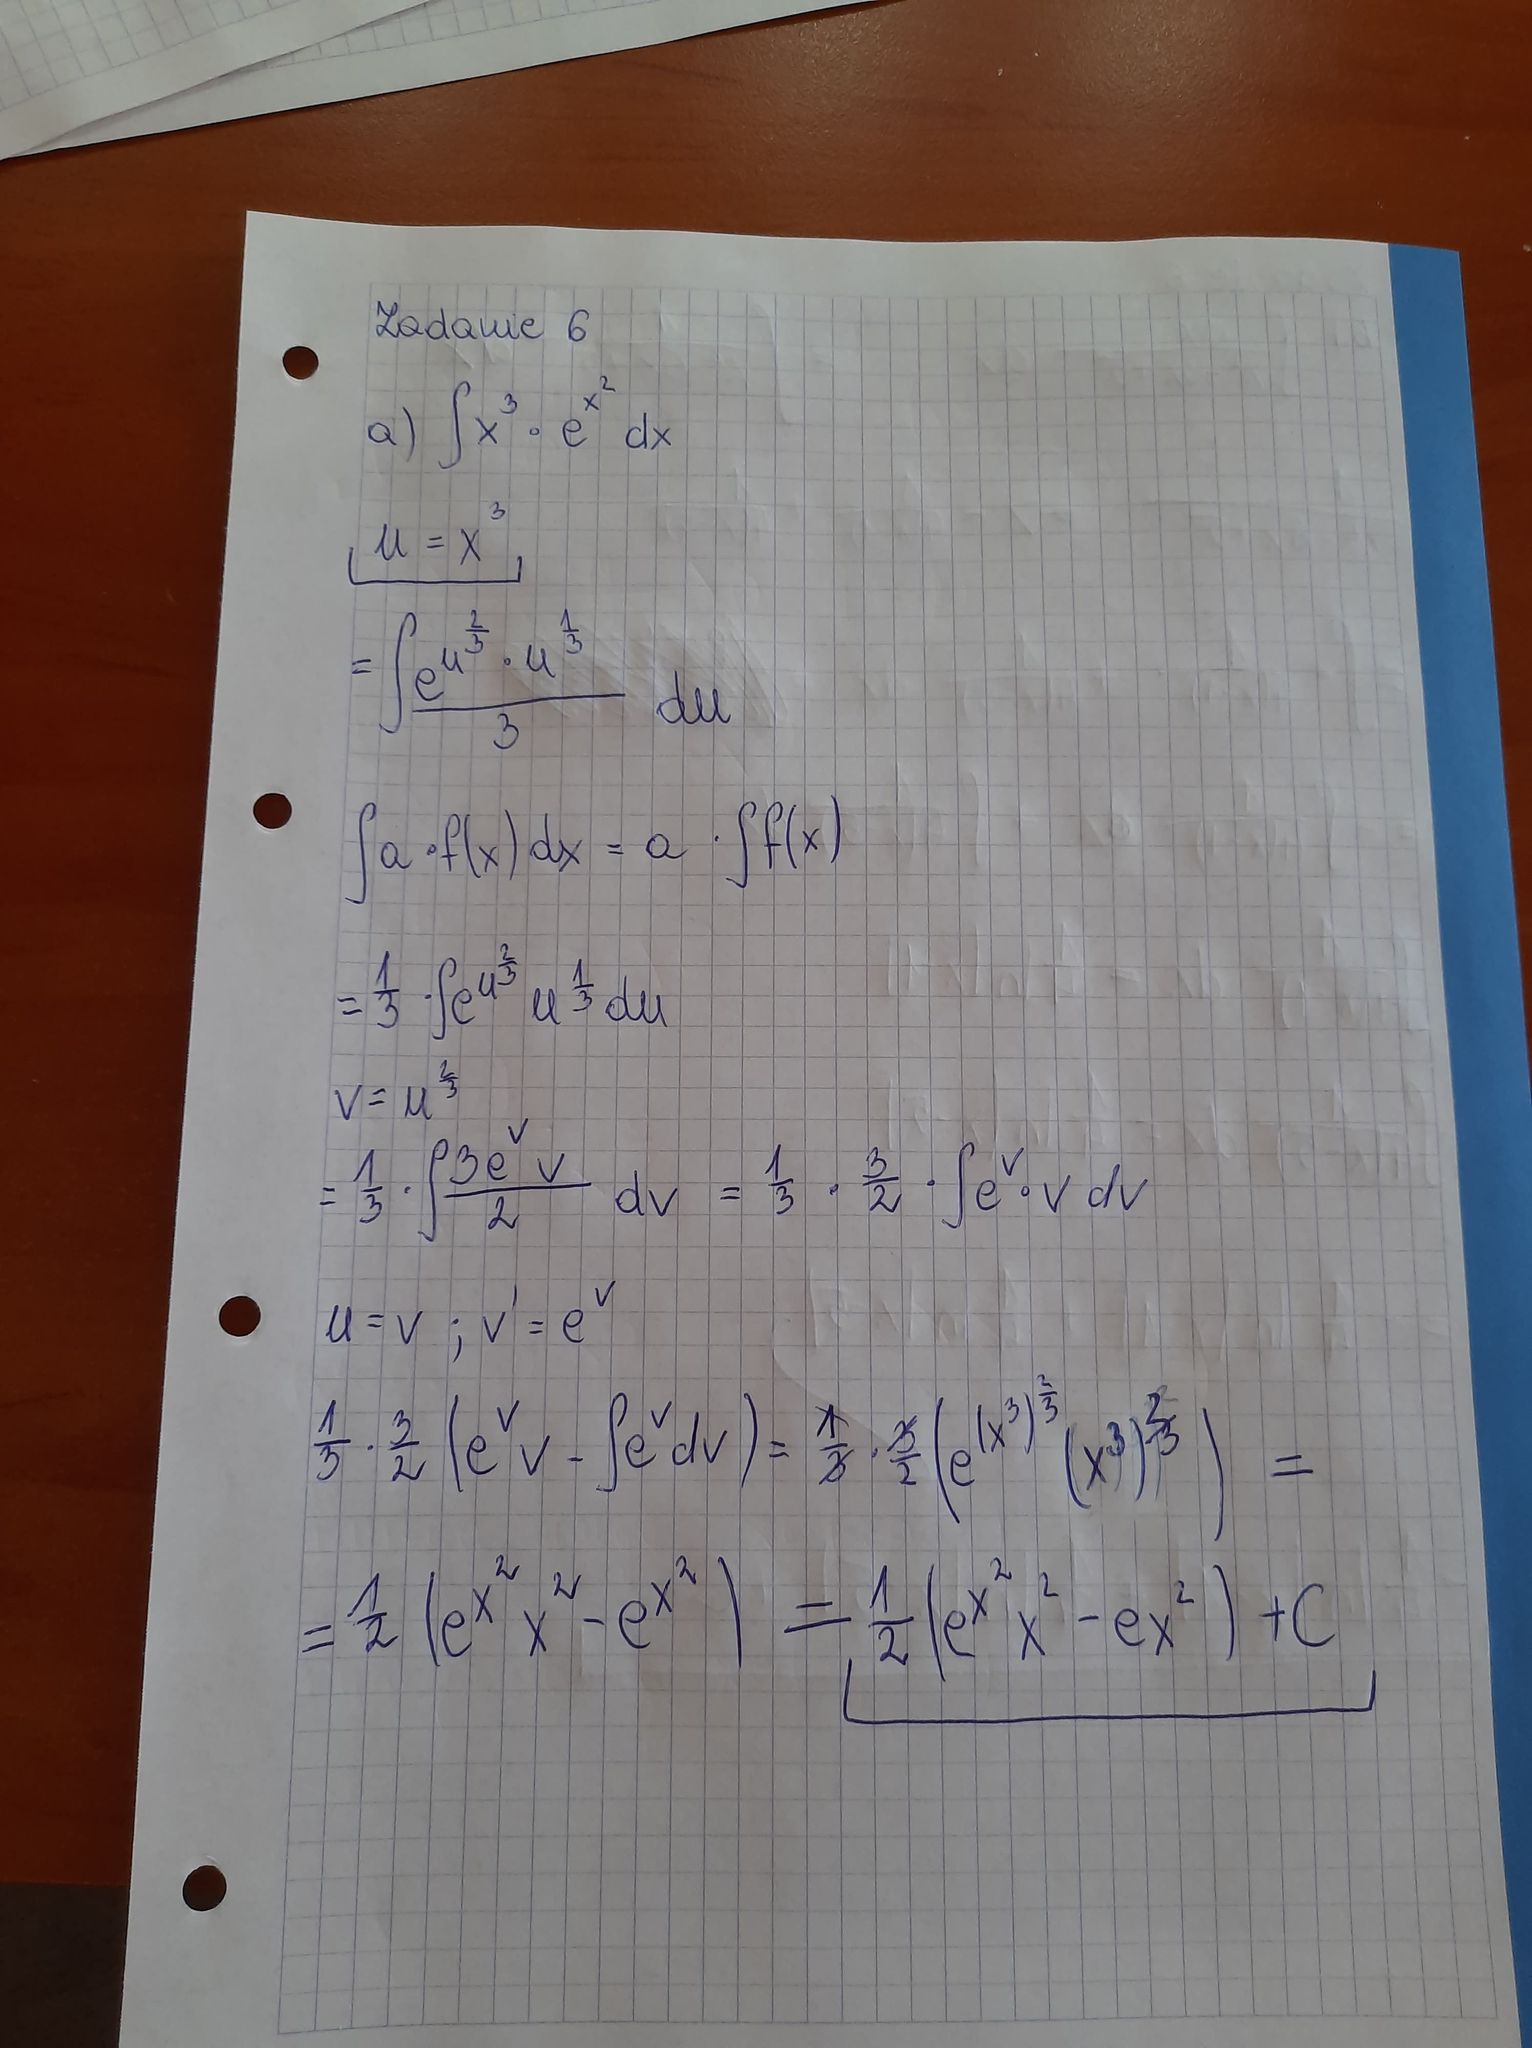 Zadanie 6
a) ∫x³ · e^(x²) dx
u = x³
= ∫ (e^(u^(2/3)) · u^(1/3))/3 du
∫a · f(x) dx = a · ∫f(x)
= 1/3 · ∫e^(u^(2/3)) u^(1/3) du
v = u^(2/3)
= 1/3 · ∫ (3e^v v)/2 dv = 1/3 · 3/2 · ∫e^v · v dv
u = v ; v' = e^v
1/3 · 3/2 (e^v v - ∫e^v dv) = 1/3 · 3/2 (e^((x³)^(2/3)) (x³)^(2/3)) =
= 1/2 (e^(x²) x² - e^(x²)) = 1/2 (e^(x²) x² - ex²) + C